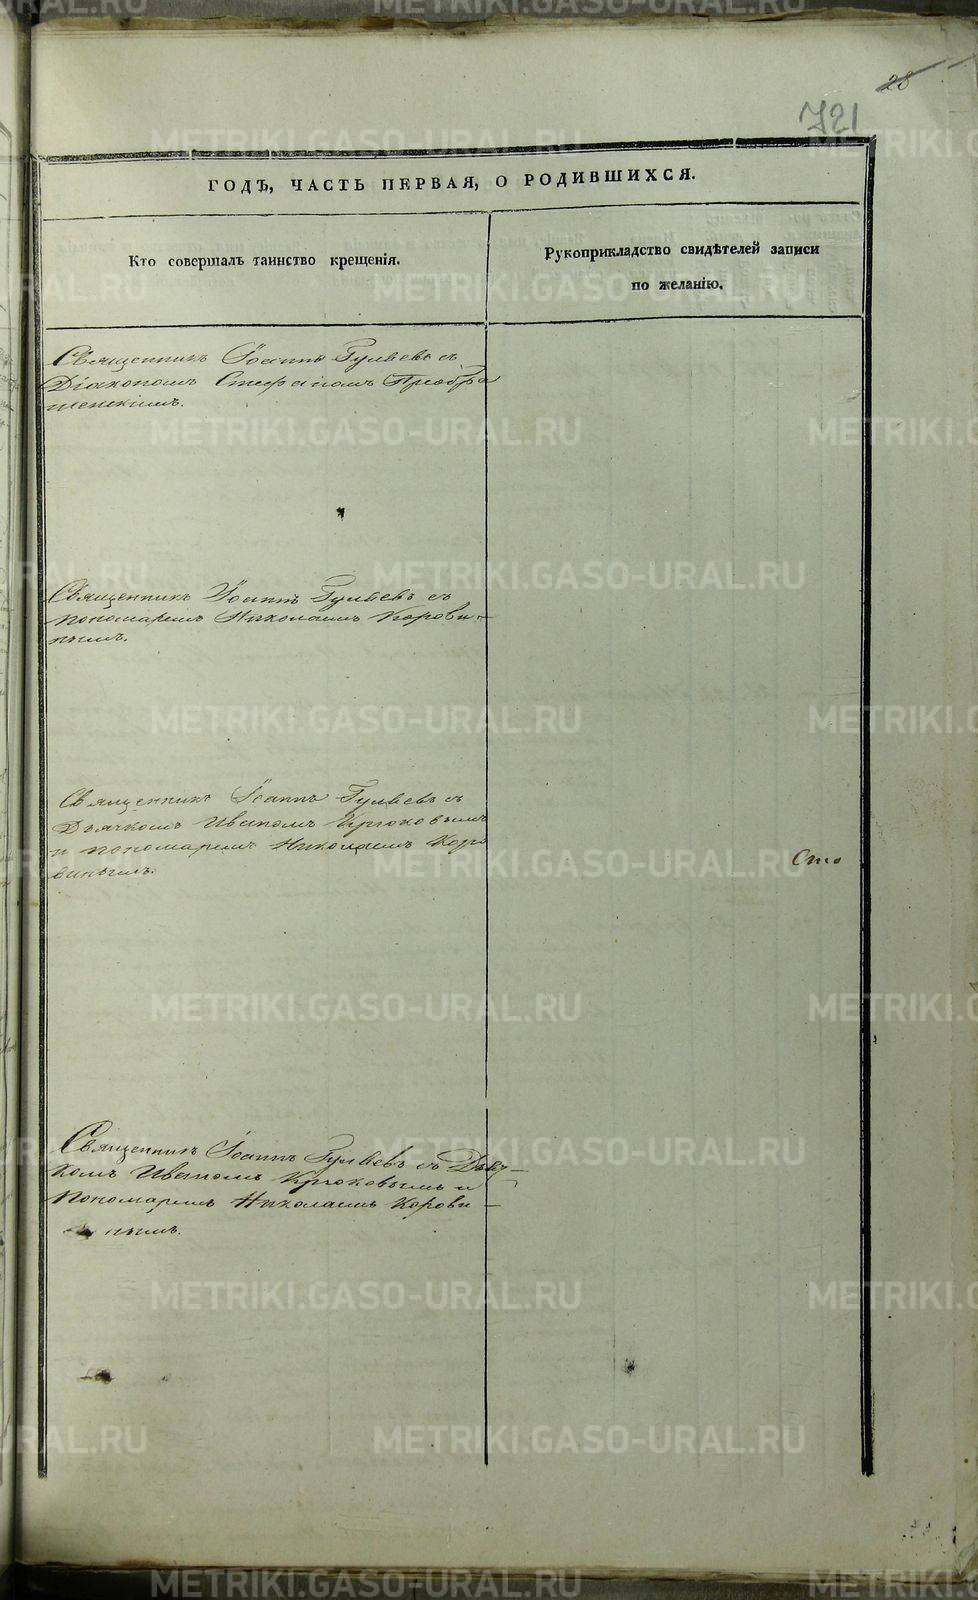 28
721
ГОДЪ, ЧАСТЬ ПЕРВАЯ, О РОДИВШИХСЯ.
Кто совершалъ таинство крещенія.
Рукоприкладство свидѣтелей записи
по желанію.
Священникъ Іоаннъ Гуляевъ съ
Діакономъ Стефаномъ Преобра
женскимъ.
Священникъ Іоаннъ Гуляевъ съ
пономаремъ Николаемъ Корови-
нымъ.
Священникъ Іоаннъ Гуляевъ съ
Дьячкомъ Иваномъ Крюковымъ
и пономаремъ Николаемъ Коро
винымъ.
Сто
Священникъ Іоаннъ Гуляевъ съ Дьяч-
комъ Иваномъ Крюковымъ и
Пономаремъ Николаемъ Корови-
нымъ.
METRIKI.GASO-URAL.RU